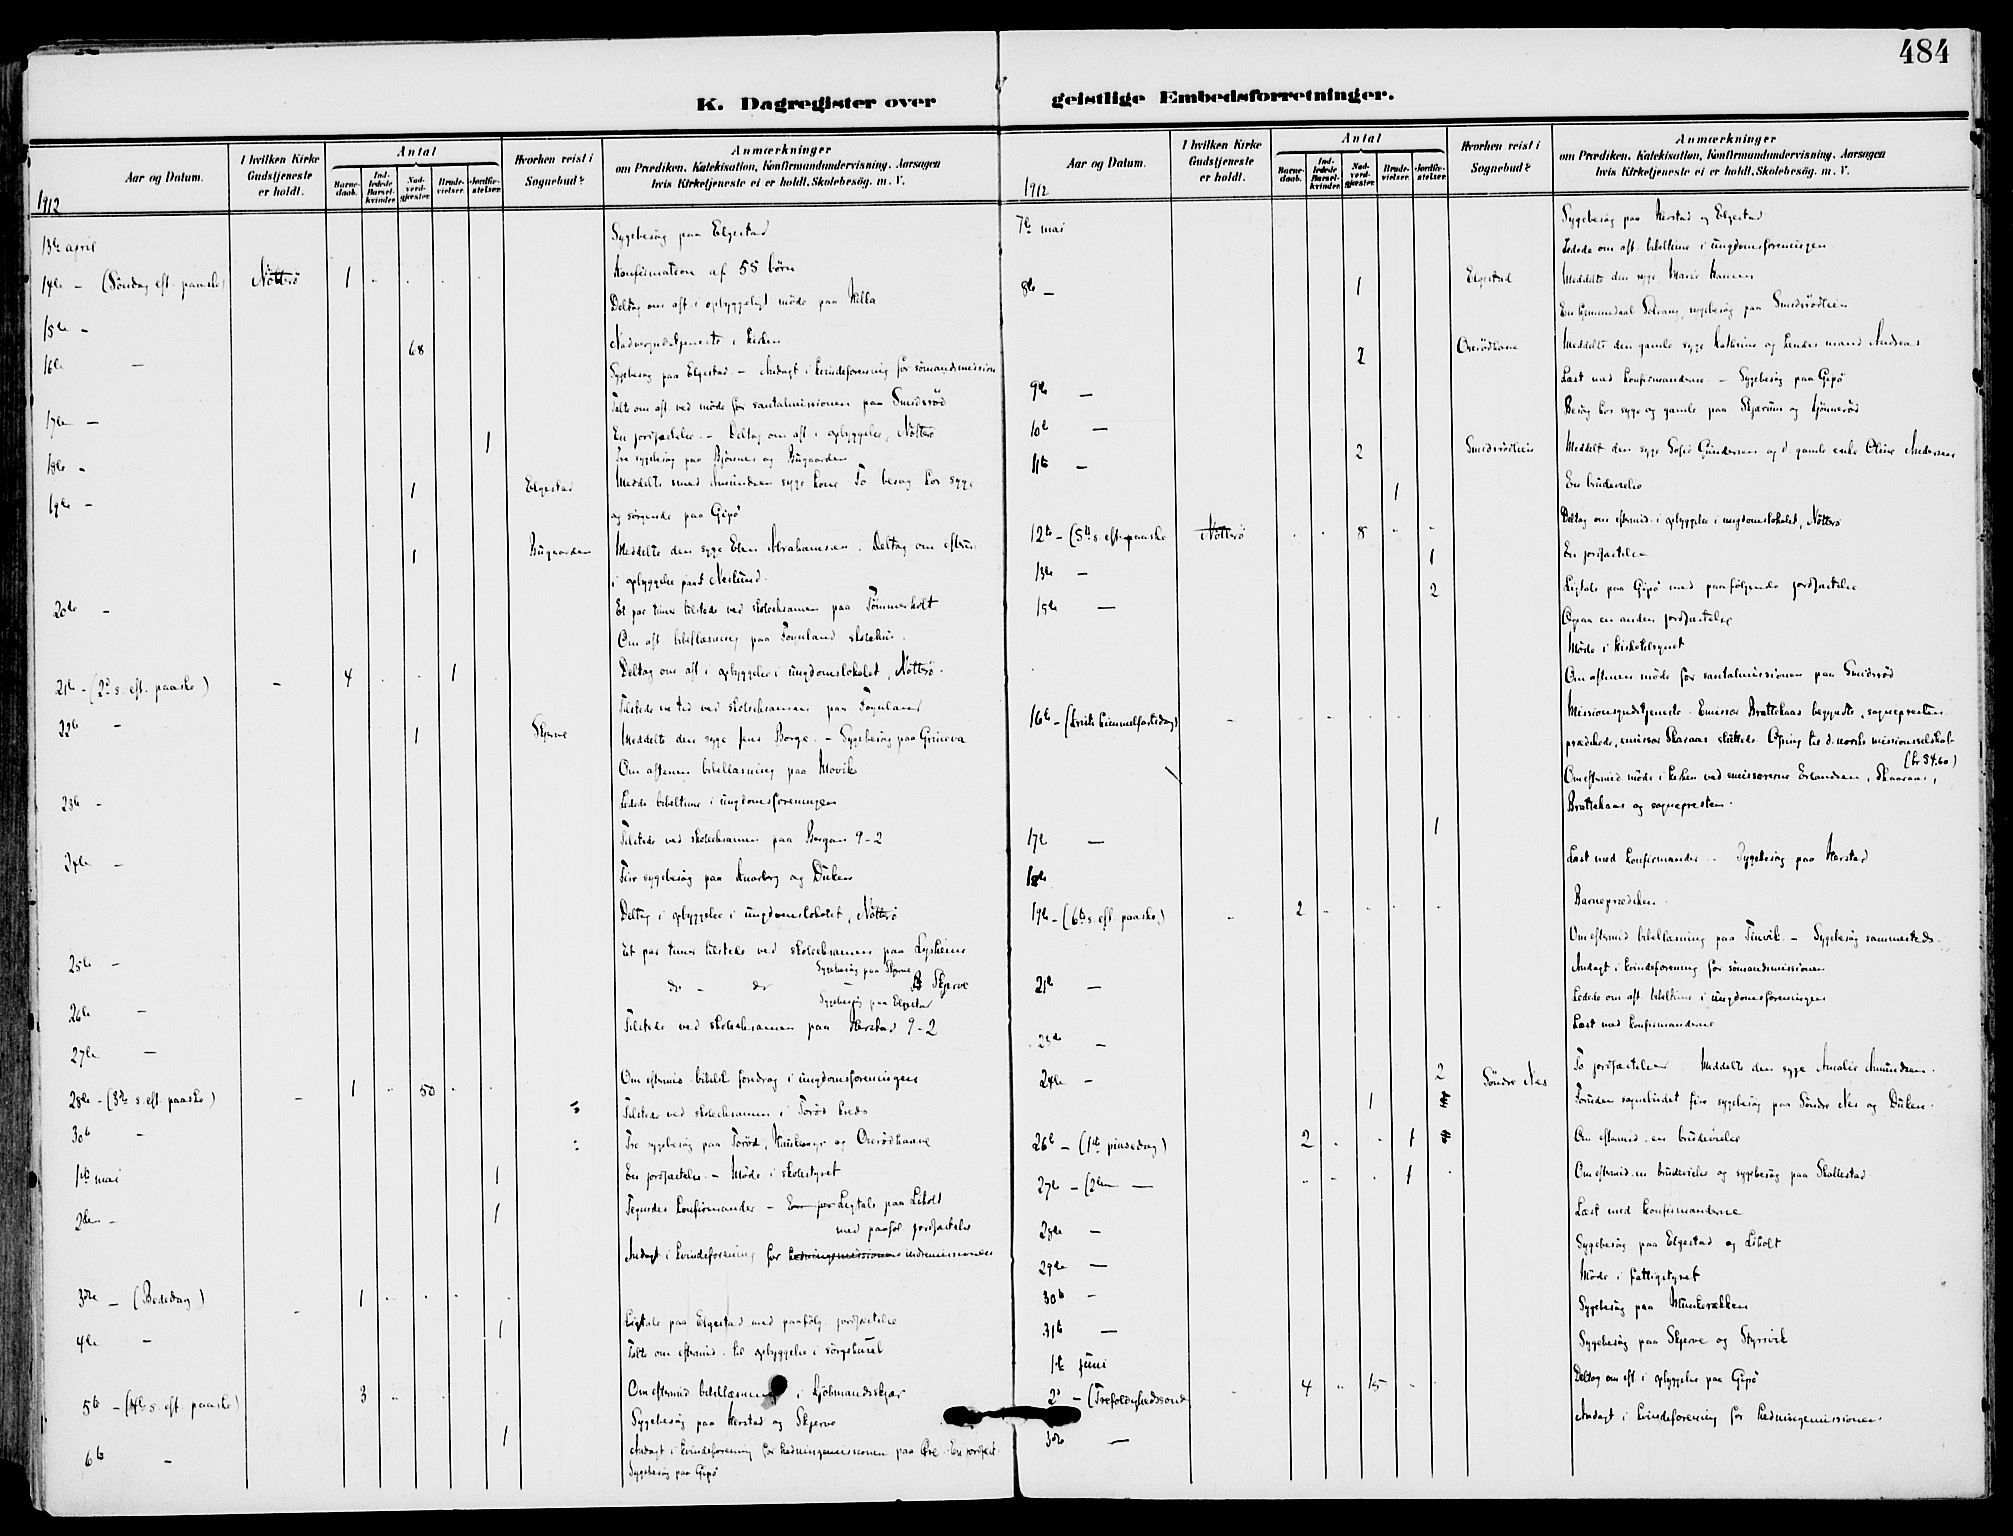 484
K. Dagregister over geistlige Embedsforretninger.
Aar og Datum.
I hvilken Kirke Gudstjeneste er holdt.
Antal
Barne-daab.
Ind-ledede Barsel-kvinder.
Nad-verd-gjæster.
Brude-vielser.
Jordfæ-stelser.
Hvorhen reist i Sognebud?
Anmærkninger
om Prædiken, Katekisation, Konfirmandundervisning, Aarsagen
hvis Kirketjeneste ei er holdt, Skolebesøg, m. V.
1912
13de april Sygebesøg paa Elgestad
14de - (Søndag eft. paaske) Nøtterø 1 Konfirmation af 55 børn
Deltog om aft. i opbyggeligt møde paa Hella
15de -
68 i kirken
16de - Sygebesøg paa Elgestad. - Andagt i kvindeforening for sømandsmission
Talte om aft. ved møde for santalmissionen paa Smidsrød
17de - 1 En jordfæstelse. - Deltog om aft. i opbyggelse, Nøtterø
18de - sygebesøg paa Bjønnes og Bugaarden
19de - 1 Elgestad Meddelte smed Amundsens syge kone To besøg hos syge
og sørgende paa Gipø
1 Bugaarden Meddelte den syge Elen Abrahamsen. Deltog om efterm.
i opbyggelse paa Neslund.
20de - Et par timer tilstede ved skoleeksamen paa Tømmerholt
Om aft. bibellæsning paa Føynland skolehus.
21de - (2den s. eft. paaske) - 4 1 Deltog om aft. i opbyggelse i ungdomslokalet, Nøtterø.
22de - Tilstede en tid ved skoleeksamen paa Føynland
1 Skjerve Meddelte den syge Jens Borge. - Sygebesøg paa Grimeva
Om aftenen bibellæsning paa Movik
23de - Ledede bibeltime i ungdomsforeningen
Tilstede ved skoleeksamen paa Borgen 9-2
24de - sygebesøg paa Knarberg og Duken
Deltog i opbyggelse i ungdomslokalet, Nøtterø
25de - Et par timer tilstede ved skoleeksamen paa Lysheim
Sygebesøg paa Skjerve
26de - do - do Skjerve
Sygebesøg paa Elgestad
27de - Tilstede ved skoleeksamen paa Herstad 9-2
28de - (3die s. eft. paaske) - 1 50 Om eftermid. bibelsk foredrag i ungdomsforeningen
Tilstede ved skoleeksamen i Torød kreds
30te - Tre sygebesøg paa Torød, og Oserødhaune
1ste mai 1 En jordfæstelse. - Møde i skolestyret
2den - 1 Tegnedes konfirmander - Ligtale paa Liholt
med paaføl. jordfæstelse
Andagt i kvindeforening for hedningemissionen indremissionen
3die - (Bededag) - 1
4de - 1 Ligtale paa Elgestad med paafølg. jordfæstelse
Talte om eftermid. til opbyggelse i
5te - (4de s. eft. paaske) 3 Om eftermid bibellæsning i Kjøbmandsskjær
Sygebesøg paa Herstad og Skjerve
6te - 1 Andagt i kvindeforening for hedningemissionen paa Øre. En jordfæst.
Sygebesøg paa Gipø
Aar og Datum.
I hvilken Kirke Gudstjeneste er holdt.
Antal
Barne-daab.
Ind-ledede Barsel-kvinder.
Nad-verd-gjæster.
Brude-vielser.
Jordfæ-stelser.
Hvorhen reist i Sognebud?
Anmærkninger
om Prædiken, Katekisation, Konfirmandundervisning, Aarsagen
hvis Kirketjeneste ei er holdt, Skolebesøg, m. V.
1912
7de mai Sygebesøg paa Herstad og Elgestad
Ledede om aft. bibeltime i ungdomsforeningen
8de - 1 Elgestad Meddelte den syge Marie Hansen
sygebesøg paa Smidsrødteien
2 Oserødhaune Meddelte den gamle syge Kathrine og hendes mand Andreas
9de - Læst med konfirmanderne. - Sygebesøg paa Gipø
10de - Besøg hos syge og gamle paa Skjærum og
11te - 2 Smidsrødteien Meddelt den syge Sofie Gundersen og d. gamle enke Oline Andersen
1 En brudevielse
12te - (5te s. eft. paaske Nøtterø 8 Deltog om eftermid. i opbyggelse i ungdomslokalet, Nøtterø
13de - 1 En jordfæstelse
15de - 2 Ligtale paa Gipø med paafølgende jordfæstelse
Ogsaa en anden jordfæstelse
Møde i kirketilsynet
Om aftenen møde for santalmissionen paa Smidsrød
16de - (Kristi himmelfartsdag) - Missionsgudstjeneste. Emissær Brattekaas begyndte, sognepresten
prædikede, emissær Skaraas sluttede. Ofring til d. norske missionsselskab
(kr 34.60)
Om eftermid møde i kirken ved emissærerne Erlandsen, Skaaraas,
Brattekaas og sognepresten.
17de - 1
18de Læst med konfirmander - Sygebesøg paa Herstad
19de - (6te s. eft. paaske) - 2 Barneprædiken.
Om eftermid bibellæsning paa Tinvik. - Sygebesøg sammesteds.
21de - Andagt i kvindeforening for sømandsmissionen
Ledede om aft. bibeltime i ungdomsforeningen
23de - Læst med konfirmanderne
24de - 2 Søndre Nes To jordfæstelser. Meddelte den syge Amalie Amundsen.
1 Foruden sognebudet fire sygebesøg paa Søndre Nes og Duken.
26de - (1ste pinsedag) 2 1 Om eftermid. en brudevielse
27de - (2den - 1 Om eftermid. en brudevielse og sygebesøg paa Skallestad
28de - Læst med konfirmanderne
29de - Sygebesøg paa Elgestad og Liholt
30te - Møde i fattigstyret
31te - Sygebesøg paa Munkerækken
1ste juni Sygebesøg paa Skjerve og Styrsvik
2den - (Trefoldighedssønd. - 4 15 Deltog om eft. i opbyggelse paa Gipø
3die - Andagt i kvindeforening for hedningemissionen.